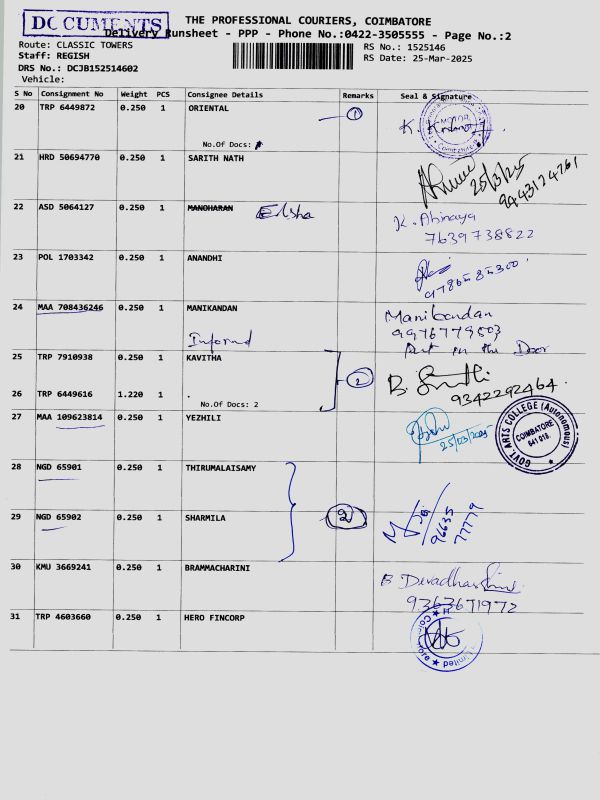 DOCUMENTS
THE PROFESSIONAL COURIERS, COIMBATORE
Delivery Runsheet - PPP - Phone No.:0422-3505555 - Page No.:2
Route: CLASSIC TOWERS
RS No.: 1525146
Staff: REGISH
RS Date: 25-Mar-2025
DRS No.: DCJB152514602
Vehicle:
S No Consignment No Weight PCS Consignee Details Remarks Seal & Signature
20 TRP 6449872 0.250 1 ORIENTAL 1
No.Of Docs:
21 HRD 50694770 0.250 1 SARITH NATH 25/3/25
9443124761
22 ASD 5064127 0.250 1 MANOHARAN Elsha K. Abinaya
7639738822
23 POL 1703342 0.250 1 ANANDHI
24 MAA 708436246 0.250 1 MANIKANDAN Manikandan
9976779503
Informd Put in the Door
25 TRP 7910938 0.250 1 KAVITHA 2
26 TRP 6449616 1.220 1 . 9342292464
No.Of Docs: 2
27 MAA 109623814 0.250 1 YEZHILI 25/03/2025
GOVT. ARTS COLLEGE (Autonomous)
COIMBATORE
641 018.
28 NGD 65901 0.250 1 THIRUMALAISAMY
29 NGD 65902 0.250 1 SHARMILA 2 96635
77779
30 KMU 3669241 0.250 1 BRAMMACHARINI B Devadharshini
9363671972
31 TRP 4603660 0.250 1 HERO FINCORP